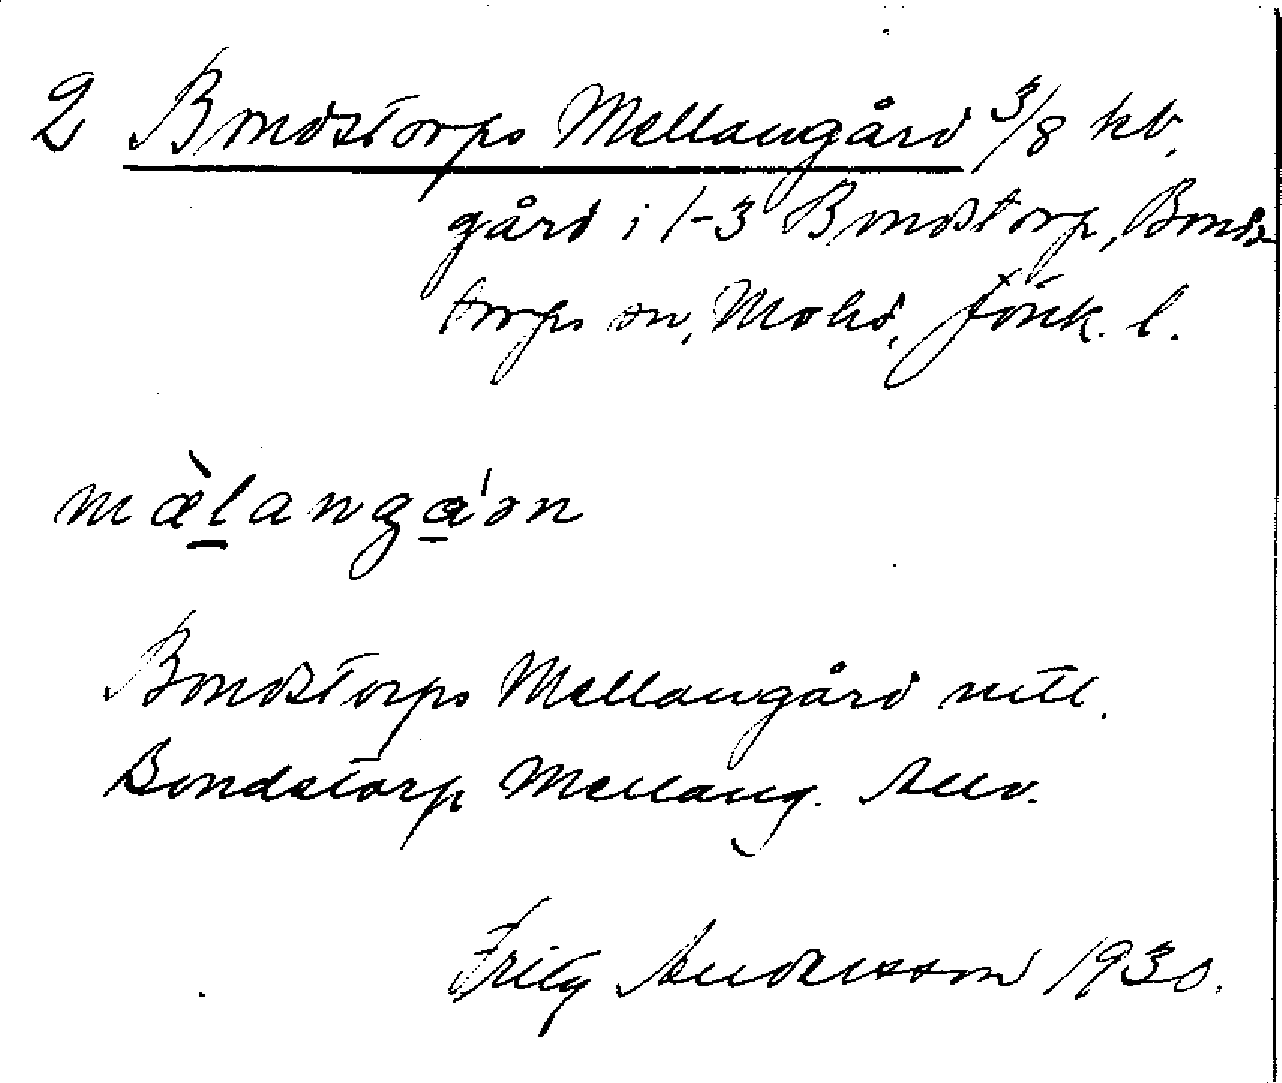 2 Bondstorps Mellangård 3/8 kb.
gård i 1-3 Bondstorp, Bonds-
torps sn, Mohd, Jönk. l.
mælangaˈn
Bondstorps Mellangård
Bondstorp Mellang.
Fritz Andersson 1930.